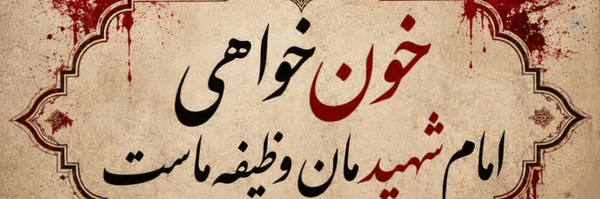 خون خواهی
امام شهیدمان وظیفه ماست